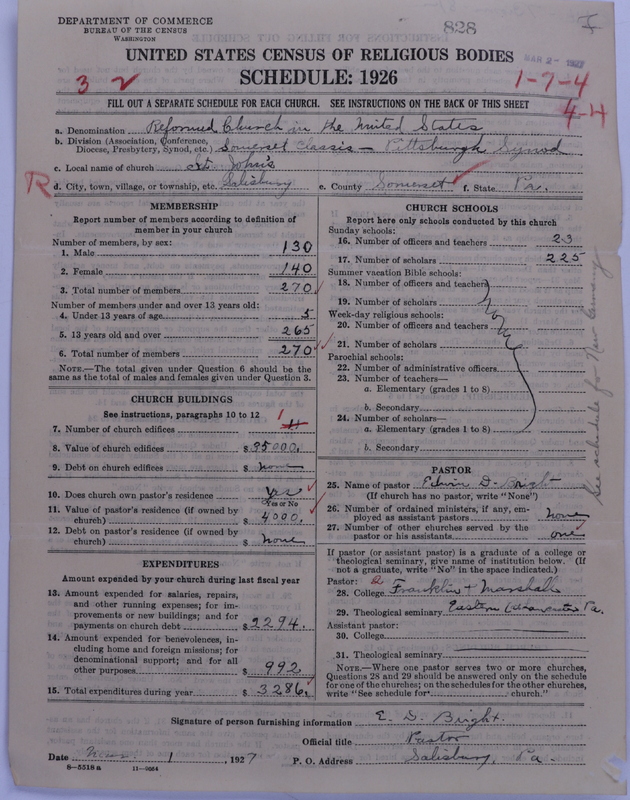 DEPARTMENT OF COMMERCE
BUREAU OF THE CENSUS
WASHINGTON
828
I
MAR 2 - 1927
UNITED STATES CENSUS OF RELIGIOUS BODIES
SCHEDULE: 1926
3 2
1-7-4
4-4
FILL OUT A SEPARATE SCHEDULE FOR EACH CHURCH. SEE INSTRUCTIONS ON THE BACK OF THIS SHEET
a. Denomination Reformed Church in the United States
b. Division (Association, Conference, Diocese, Presbytery, Synod, etc.) Somerset Classis - Pittsburgh Synod
c. Local name of church St. John's
R
d. City, town, village, or township, etc. Salisbury e. County Somerset f. State Pa.
MEMBERSHIP
Report number of members according to definition of member in your church
Number of members, by sex:
1. Male 130
2. Female 140
3. Total number of members 270
Number of members under and over 13 years old:
4. Under 13 years of age 5
5. 13 years old and over 265
6. Total number of members 270
NOTE.—The total given under Question 6 should be the same as the total of males and females given under Question 3.
CHURCH BUILDINGS
See instructions, paragraphs 10 to 12
7. Number of church edifices 1
8. Value of church edifices $ 35000.
9. Debt on church edifices $ none
10. Does church own pastor's residence Yes
Yes or No
11. Value of pastor's residence (if owned by church) $ 4000.
12. Debt on pastor's residence (if owned by church) $ none
EXPENDITURES
Amount expended by your church during last fiscal year
13. Amount expended for salaries, repairs, and other running expenses; for improvements or new buildings; and for payments on church debt $ 2294.
14. Amount expended for benevolences, including home and foreign missions; for denominational support; and for all other purposes $ 992
15. Total expenditures during year $ 3286.
CHURCH SCHOOLS
Report here only schools conducted by this church
Sunday schools:
16. Number of officers and teachers 23
17. Number of scholars 225
Summer vacation Bible schools:
18. Number of officers and teachers
19. Number of scholars
Week-day religious schools:
20. Number of officers and teachers
21. Number of scholars
Parochial schools:
22. Number of administrative officers
23. Number of teachers—
a. Elementary (grades 1 to 8)
b. Secondary
24. Number of scholars—
a. Elementary (grades 1 to 8)
b. Secondary
None
See schedule for New
PASTOR
25. Name of pastor Edwin D. Bright
(If church has no pastor, write "None")
26. Number of ordained ministers, if any, employed as assistant pastors none
27. Number of other churches served by the pastor or his assistants one
If pastor (or assistant pastor) is a graduate of a college or theological seminary, give name of institution below. (If not a graduate, write "No" in the space indicated.)
Pastor:
28. College Franklin + Marshall
29. Theological seminary Eastern Lancaster Pa.
Assistant pastor:
30. College
31. Theological seminary
NOTE.—Where one pastor serves two or more churches, Questions 28 and 29 should be answered only on the schedule for one of the churches; on the schedules for the other churches, write "See schedule for church."
Signature of person furnishing information E. D. Bright
Official title Pastor
Date 1, 1927 P. O. Address Salisbury, Pa.
8-5518 a 11-9664